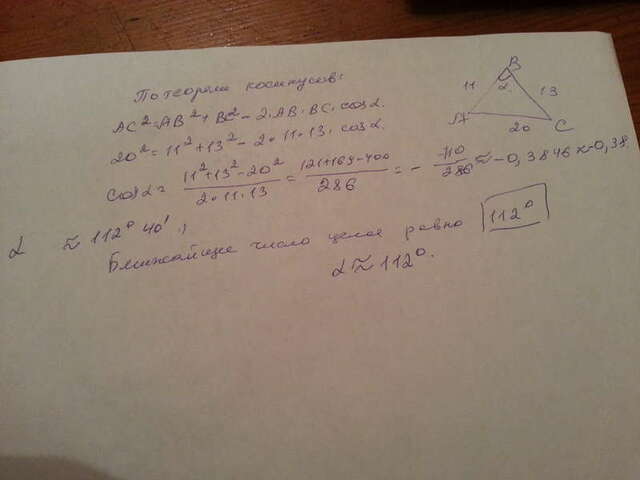 По теореме косинусов:
AC² = AB² + BC² - 2·AB·BC·cosα.
20² = 11² + 13² - 2·11·13·cosα.
cosα = (11² + 13² - 20²) / (2·11·13) = (121+169-400) / 286 = - 110 / 286 ≈ -0,3846 ≈ -0,38.
α ≈ 112° 40';
Ближайшее число целое равно 112°
α ≈ 112°.
B
α
11
13
A
20
C